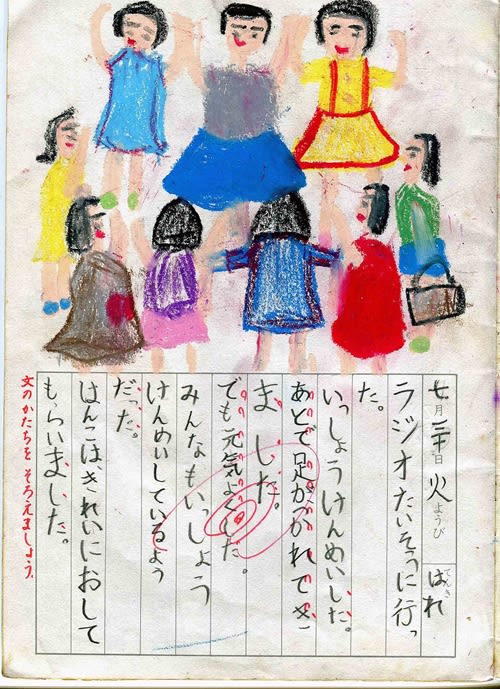 七月日 火ようび てんき はれ
ラジオたいそうに行っ
た。
いっしょうけんめいした。
あとで足がつかれてき
ました。
でも元気よくした。
みんなもいっしょう
けんめいしているよう
だった。
はんこは、きれいにおして
もらいました。
文のかたちを そろえましょう。